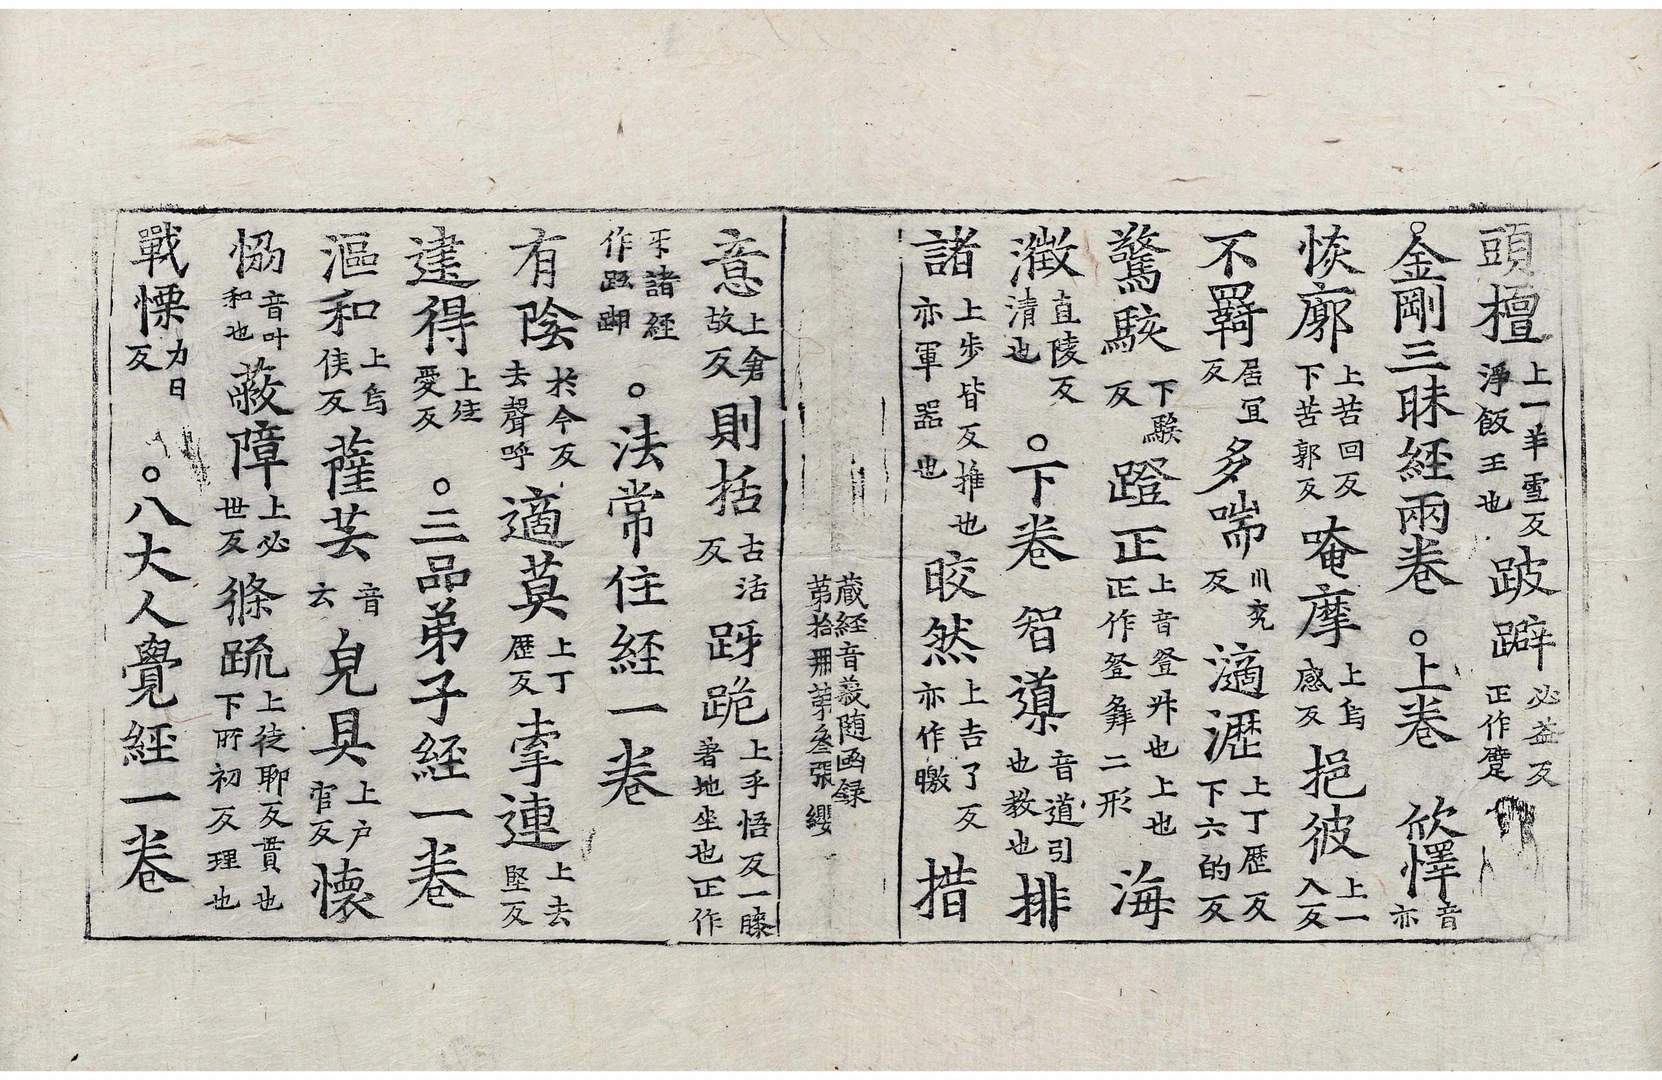 頭檀上一羊雪反淨飯王也跛躃必益反正作躄
○金剛三昧經兩卷○上卷欣懌音亦
恢廓上苦回反下苦郭反唵摩上烏感反挹彼上一入反
不羇居冝反多喘川兖反滴瀝上丁歷反下六的反
驚駭下騃反蹬正上音登升也上也正作登彞二形海
澂直陵反清也○下卷智導音道引也教也排
諸上步皆反推也亦軍器也晈然上吉了反亦作曒措
藏經音義随函録
第拾册第叄張纓
意上倉故反則括古活反跱跪上乎悟反一膝著地坐也正作
𠄔諸經作跕䟽○法常住經一卷
有陰於今反去聲呼適莫上丁歷反牽連上去堅反
逮得上徒愛反○三品弟子經一卷
漚和上烏侯反薩芸音云皃具上户官反懷
恊音叶和也蔽障上必世反條䟽上徒聊反貫也下所初反理也
戰慄力日反○八大人覺經一卷